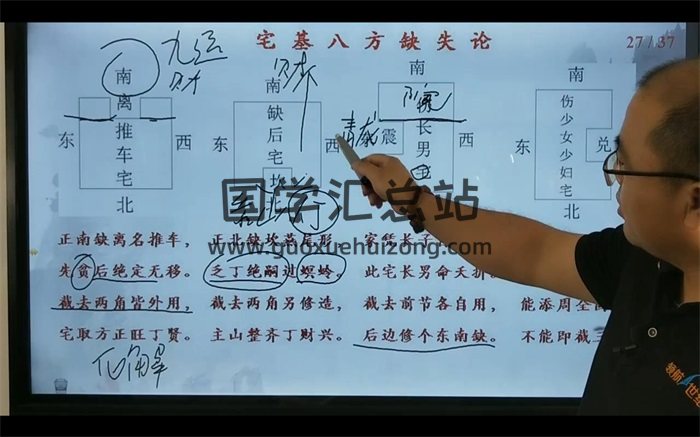 宅基八方缺失论
27/37
南
离
推
车
宅
东
西
北
九运
财
南
缺
后
宅
东
西
财
南
震
长
男
东
西
北
青龙
南
伤
少
女
少
妇
宅
东
兑
北
国学汇总站
www.guoxuehuizong.com
正南缺离名推车,
先贫后绝定无移。
截去两角皆外用,
宅取方正旺丁贤。
正北缺坎
乏丁绝嗣过螟蛉。
截去两角另修造,
主山整齐丁财兴。
家凭长子
此宅长男命夭折。
截去前节各自用,
后边修个东南缺。
能添周全
不能即截
化解
领航
世纪